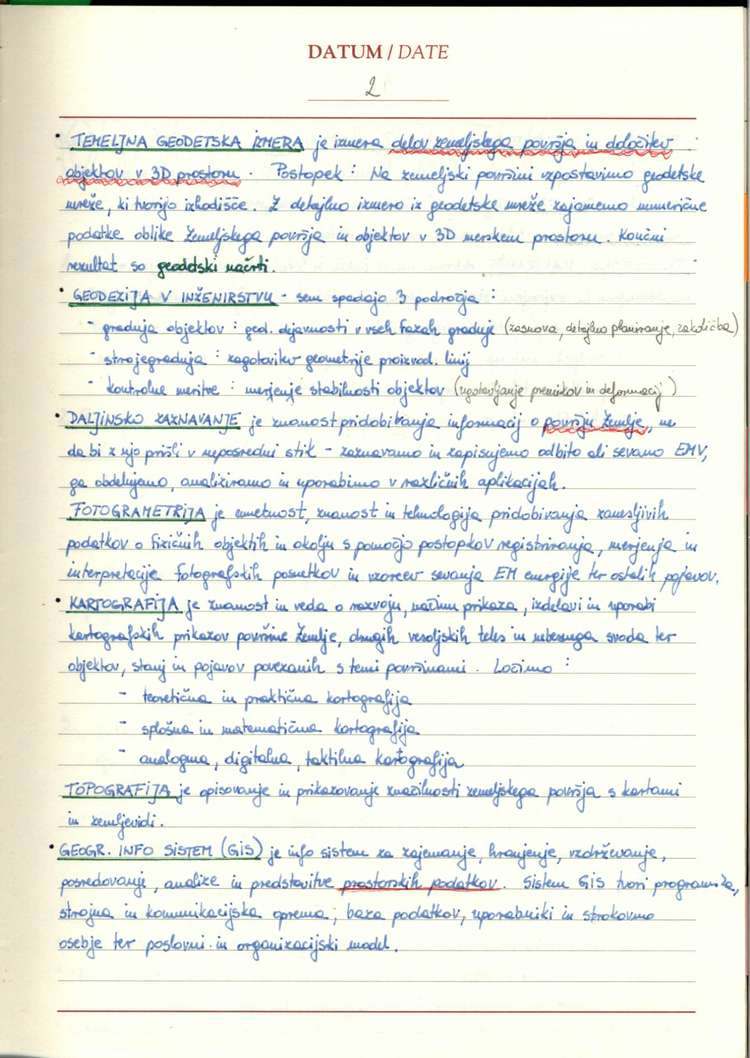 DATUM / DATE
2
• TEMELJNA GEODETSKA IZMERA je izmera delov zemeljskega površja in določitev
objektov v 3D prostoru. Postopek: Na zemeljski površini vzpostavimo geodetske
mreže, ki tvorijo izhodišče. Z detajlno izmero iz geodetske mreže zajamemo numerične
podatke oblike zemeljskega površja in objektov v 3D merskem prostoru. Končni
rezultat so geodetski načrti.
• GEODEZIJA V INŽENIRSTVU - sem spadajo 3 področja:
- gradnja objektov: geod. dejavnosti v vseh fazah gradnje (zasnova, detajlno planiranje, zakoličba)
- strojegradnja: zagotovitev geometrije proizvod. linij
- kontrolne meritve: merjenje stabilnosti objektov (ugotavljanje premikov in deformacij)
• DALJINSKO ZAZNAVANJE je znanost pridobivanja informacij o površju Zemlje, ne
da bi z njo prišli v neposredni stik - zaznavamo in zapisujemo odbito ali sevano EMV,
ga obdelujemo, analiziramo in uporabimo v različnih aplikacijah.
FOTOGRAMETRIJA je umetnost, znanost in tehnologija pridobivanja zanesljivih
podatkov o fizičnih objektih in okolju s pomočjo postopkov registriranja, merjenja in
interpretacije fotografskih posnetkov in vzorcev sevanja EM energije ter ostalih pojavov.
• KARTOGRAFIJA je znanost in veda o razvoju, načinu prikaza, izdelavi in uporabi
kartografskih prikazov površine Zemlje, drugih vesoljskih teles in nebesnega svoda ter
objektov, stanj in pojavov povezanih s temi površinami. Ločimo:
- teoretična in praktična kartografija
- splošna in matematična kartografija
- analogna, digitalna, taktilna kartografija
TOPOGRAFIJA je opisovanje in prikazovanje značilnosti zemeljskega površja s kartami
in zemljevidi.
• GEOGR. INFO SISTEM (GIS) je info sistem za zajemanje, hranjenje, vzdrževanje,
posredovanje, analize in predstavitve prostorskih podatkov. Sistem GIS tvori programska,
strojna in komunikacijska oprema; baza podatkov, uporabniki in strokovno
osebje ter poslovni in organizacijski model.